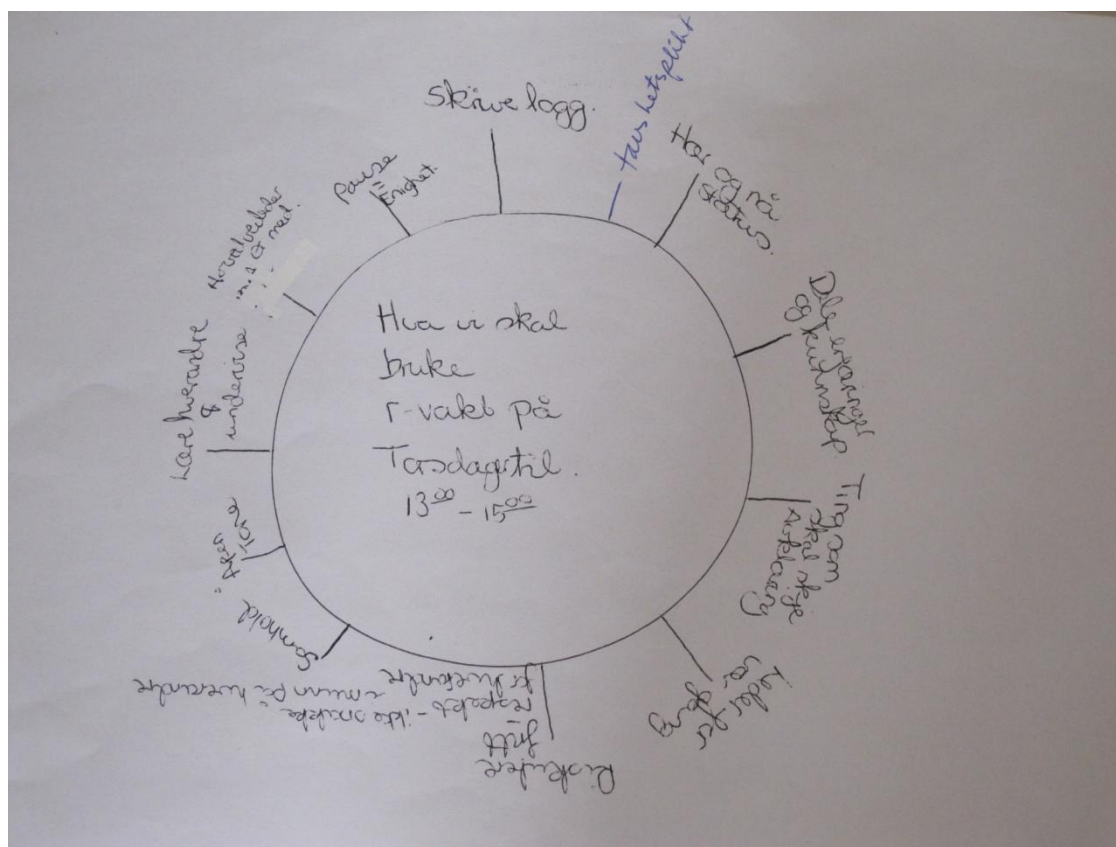 Hva vi skal
bruke
r-vakt på
Torsdager til.
13⁰⁰ - 15⁰⁰
Skrive logg.
taushetsplikt
Hør og på
status.
Dele erfaringer
og kunnskap
Ting som
skal skje
avklaring
Leder for
Diskutere
fritt
respekt - ikke snakke i munn på hverandre
for hverandre
Samhold
Åpen
Tone
Lære hverandre
& undervise
m. 1 er med.
Pause
=
Enighet.